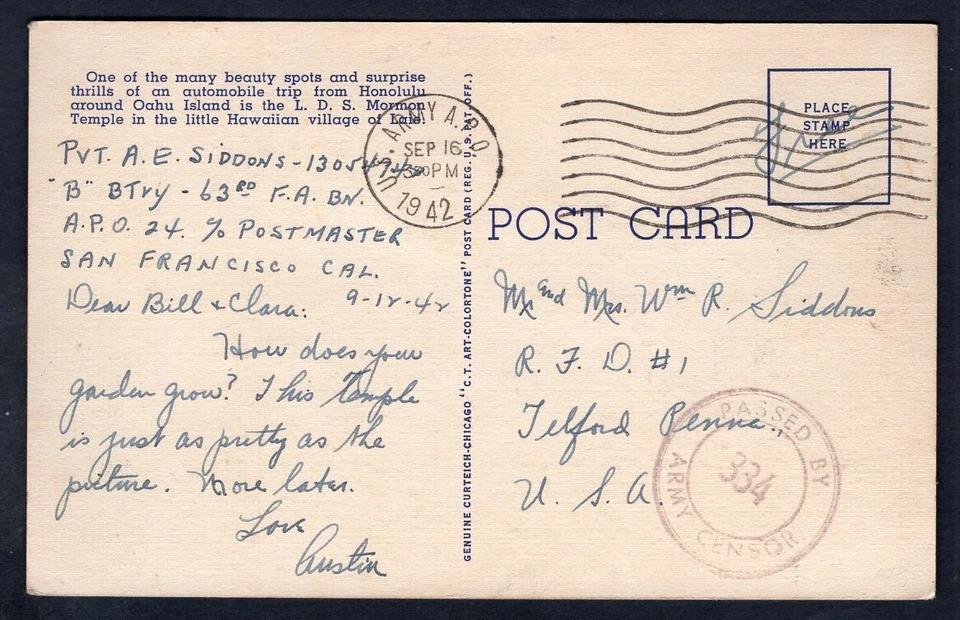 One of the many beauty spots and surprise
thrills of an automobile trip from Honolulu
around Oahu Island is the L. D. S. Mormon
Temple in the little Hawaiian village of Laie.
PVT. A. E. SIDDONS -
"B" BTry - 63RD F.A. BN.
A.P.O. 24. % POSTMASTER
SAN FRANCISCO CAL.
9-12-42
Dear Bill & Clara:
How does your
garden grow? This Temple
is just as pretty as the
picture. More later.
Love
Austin
U.S. ARMY A.P.O.
SEP 16
PM
1942
GENUINE CURTEICH-CHICAGO "C.T. ART-COLORTONE" POST CARD (REG. U.S. PAT. OFF.)
PLACE
STAMP
HERE
Free
POST CARD
Mr. and Mrs. Wm R. Siddons
R. F. D. #1
Telford Penna.,
U. S. A.
PASSED BY
334
ARMY CENSOR